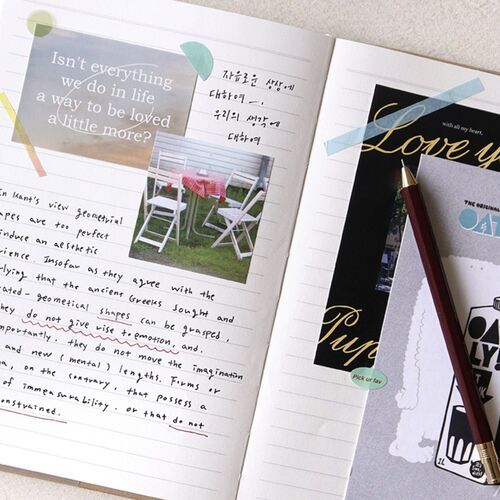 Isn't everything
we do in life
a way to be loved
a little more?
자유로운 상상에
대하여 —,
우리의 생각에
대하여
In Kant's view geometrial
apes are too perfect
induce an aesthetic
rience Insofar as they agree with the
rlying that the ancient Greeks sought and
cated- geometical shapes can be grasped,
they do not give rise to emotion, and,
mportantly, they do not move the imagination
and new (mental) lengths. Forms or
na, on the contrary, that possess a
of immeasurability, or that do not
onstrained.
with all my heart,
Love y
Pup
Pick ur fav
THE ORIGINAL
OA
OA
LY!
1L